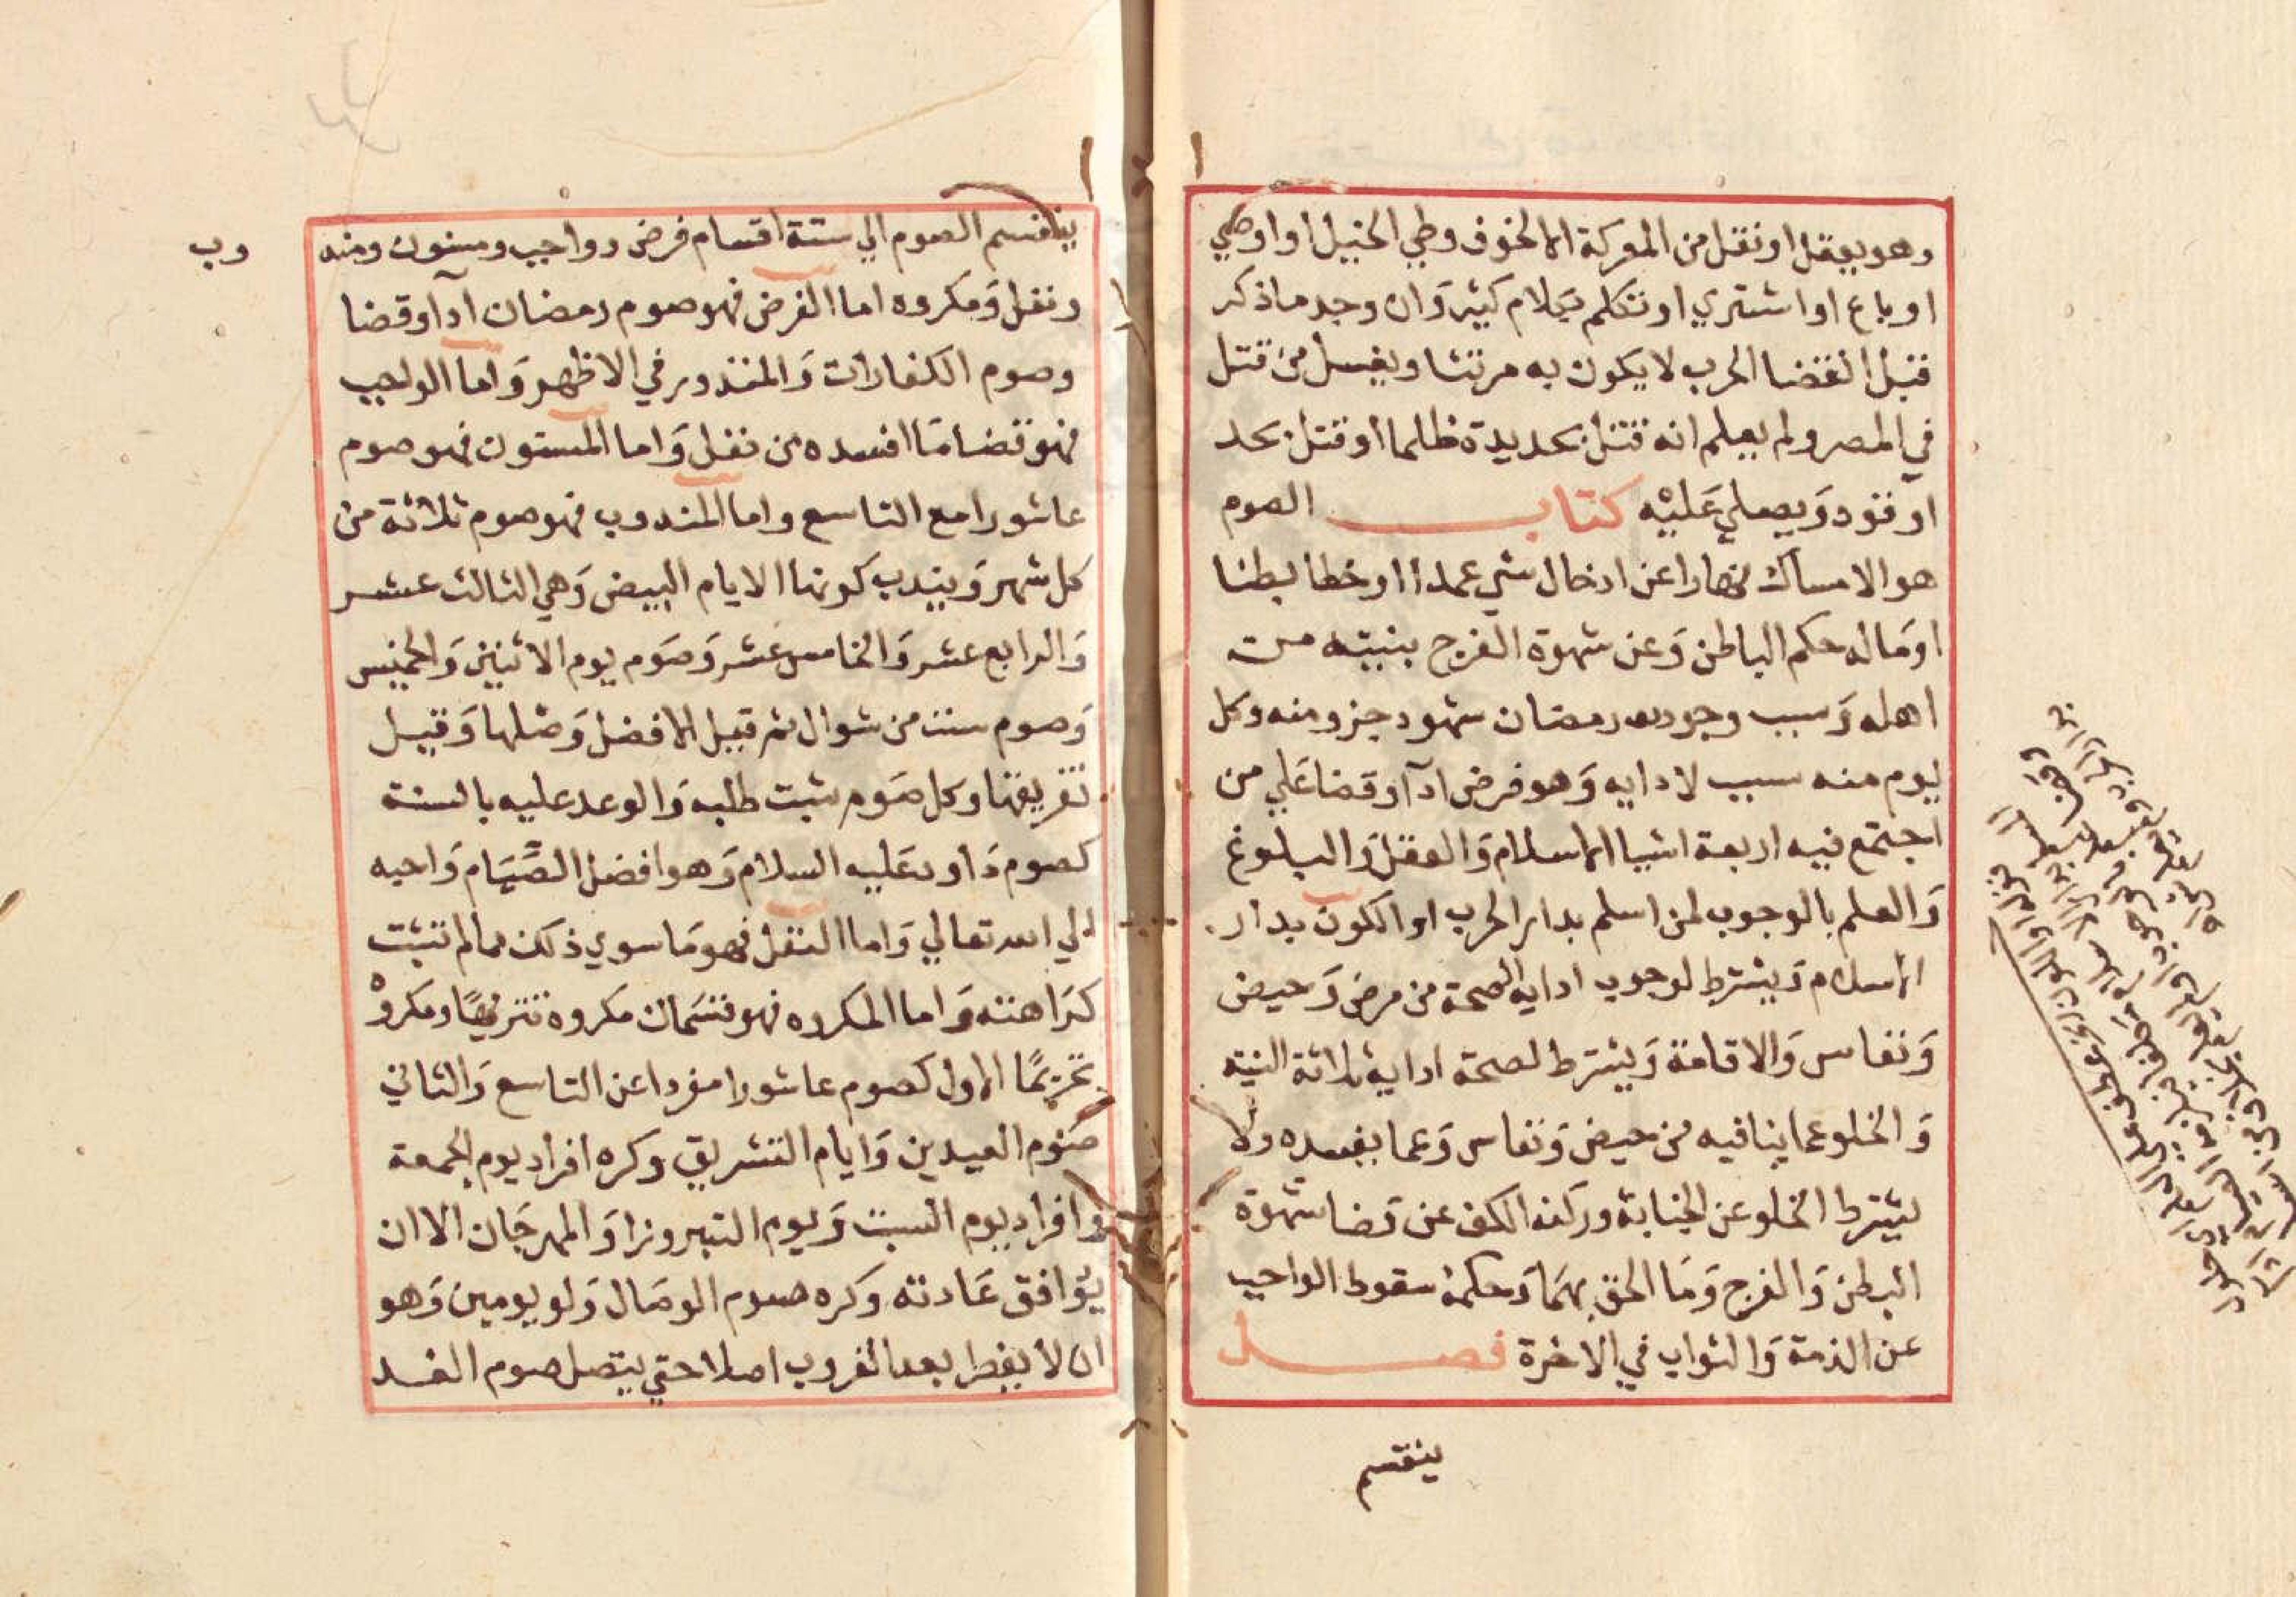 وهو يعقل او نقل من المعركة الا لخوف وطي الخيل او اوصي
او باع او اشتري او تكلم بكلام كثير وَان وجد ما ذكر
قبل انقضا الحرب لا يكون به مرتثا ويغسل من قتل
في المصر ولم يعلم انه قتل بحديدة ظلما او قتل بحد
او قود وَيصلي عَليْه كتاب الصوم
هو الامساك نهارا عن ادخال شي عمدا او خطا بطنا
اومَا له حكم الباطن وَعن شهوة الفرج بنيته من
اهله وَسبب وجوب رمضان شهود جزو منه وكل
يوم منه سبب لادايه وَهو فرض ادآ وقضا عَلي من
اجتمع فيه اربعة اشيا الاسلام وَالعقل وَالبلوغ
وَالعلم بالوجوب لمن اسلم بدار الحرب او الكون بدار
الاسلام وَيشترط لوجوب ادايه الصحة من مرض وَحيض
وَنفاس وَالاقامة وَيشترط لصحة ادايه ثلاثة النية
وَالخلو عما ينافيه من حيض وَنفاس وَعما يفسده ولا
يشترط الخلو عن الجنابة وركنه الكف عن قضا شهوة
البطن وَالفرج وَمَا الحق بهمَا وَحكمه سقوط الواجب
عن الذمة وَالثواب في الاخرة فصل
ينقسم
ينقسم الصوم الي ستة اقسام فرض وواجب ومسنون ومند
وب
ونفل وَمكروه اما الفرض فهو صوم رمضان ادآ وقضا
وصوم الكفارات وَالمنذور في الاظهر وَاما الواجب
فهو قضا مَا افسده من نفل وَاما المسنون فهو صوم
عاشورا مع التاسع واما المندوب فهو صوم ثلاثة من
كل شهر وَيندب كونها الايام البيض وَهي الثالث عشر
وَالرابع عشر وَالخامس عشر وَصَوم يوم الاثنين وَالخميس
وَصوم ست من شوال ثم قيل الافضل وَصلها وَقيل
تفريقها وكل صَوم ثبت طلبه وَالوعد عليه بالسنة
كصوم دَاود عَليه السلام وَهو افضل الصّيَام وَاحبه
الي الله تعالي وَاما النفل فهو مَا سوي ذلك مما لم تثبت
كرَاهته وَاما المكروه فهو قسمَان مكروه تنزيهًا ومكروْه
تحريمًا الاول كصوم عاشورا مفردا عن التاسع وَالثاني
صَوم العيدين وَايام التشريق وكره افراد يوم الجمعة
وافراد يوم السبت وَيوم النيروز او المهرجَان الا ان
يوَافق عَادته وَكره صوم الوصَال وَلو يومين وَهو
ان لا يفطر بعد الغروب اصلا حتي يتصل صوم الغد